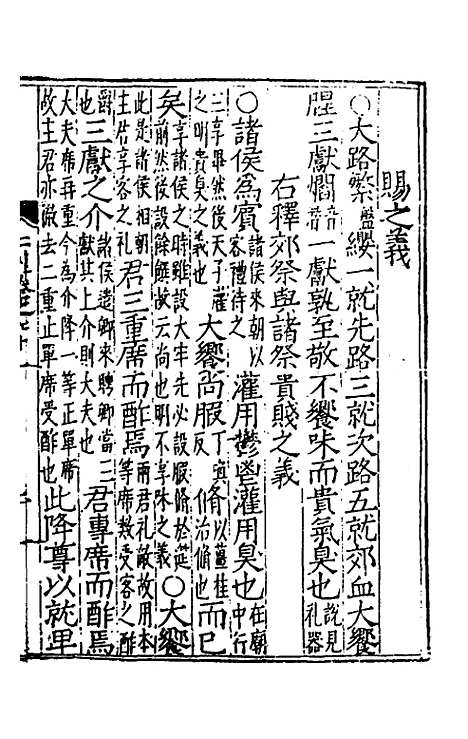 賜之義
○大路繁盤纓一就先路三就次路五就郊血大饗
腥三獻爓音一獻孰至敬不饗味而貴氣臭也說見禮器
右釋郊祭與諸祭貴賤之義
○諸侯為賓諸侯來朝以客禮待之灌用鬱鬯灌用臭也在廟中行
三享畢然後天子灌之明貴臭之義也大饗尚腶丁貫反脩以薑桂治脩也而已
矣享諸侯之時雖設大牢先必設腶脩於筵前然後設餘饌故云尚也明不享味之義○大饗
此是諸侯相朝主君享客之礼君三重席而酢焉兩君礼敵故用本等席數受客之酢
爵也三獻之介諸侯遣卿來聘卿當三獻其上介則大夫也君專席而酢焉
大夫席再重今為介降一等正單席故主君亦徹去二重正單席受酢也此降尊以就卑